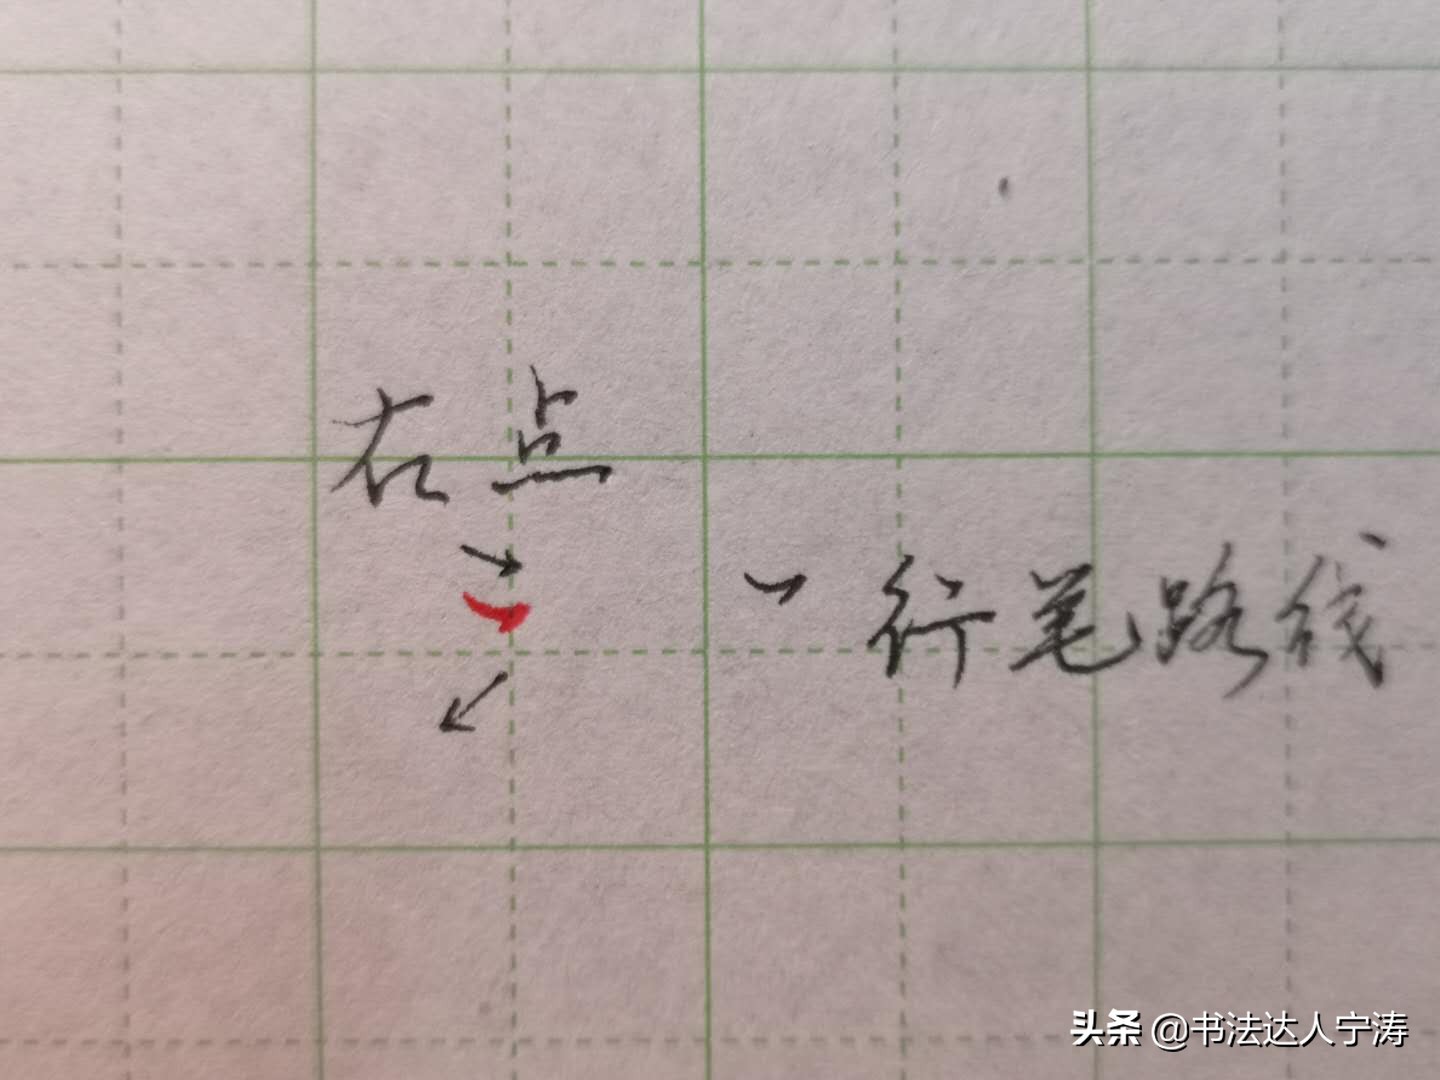 右点
行笔路线
头条 @书法达人宁涛